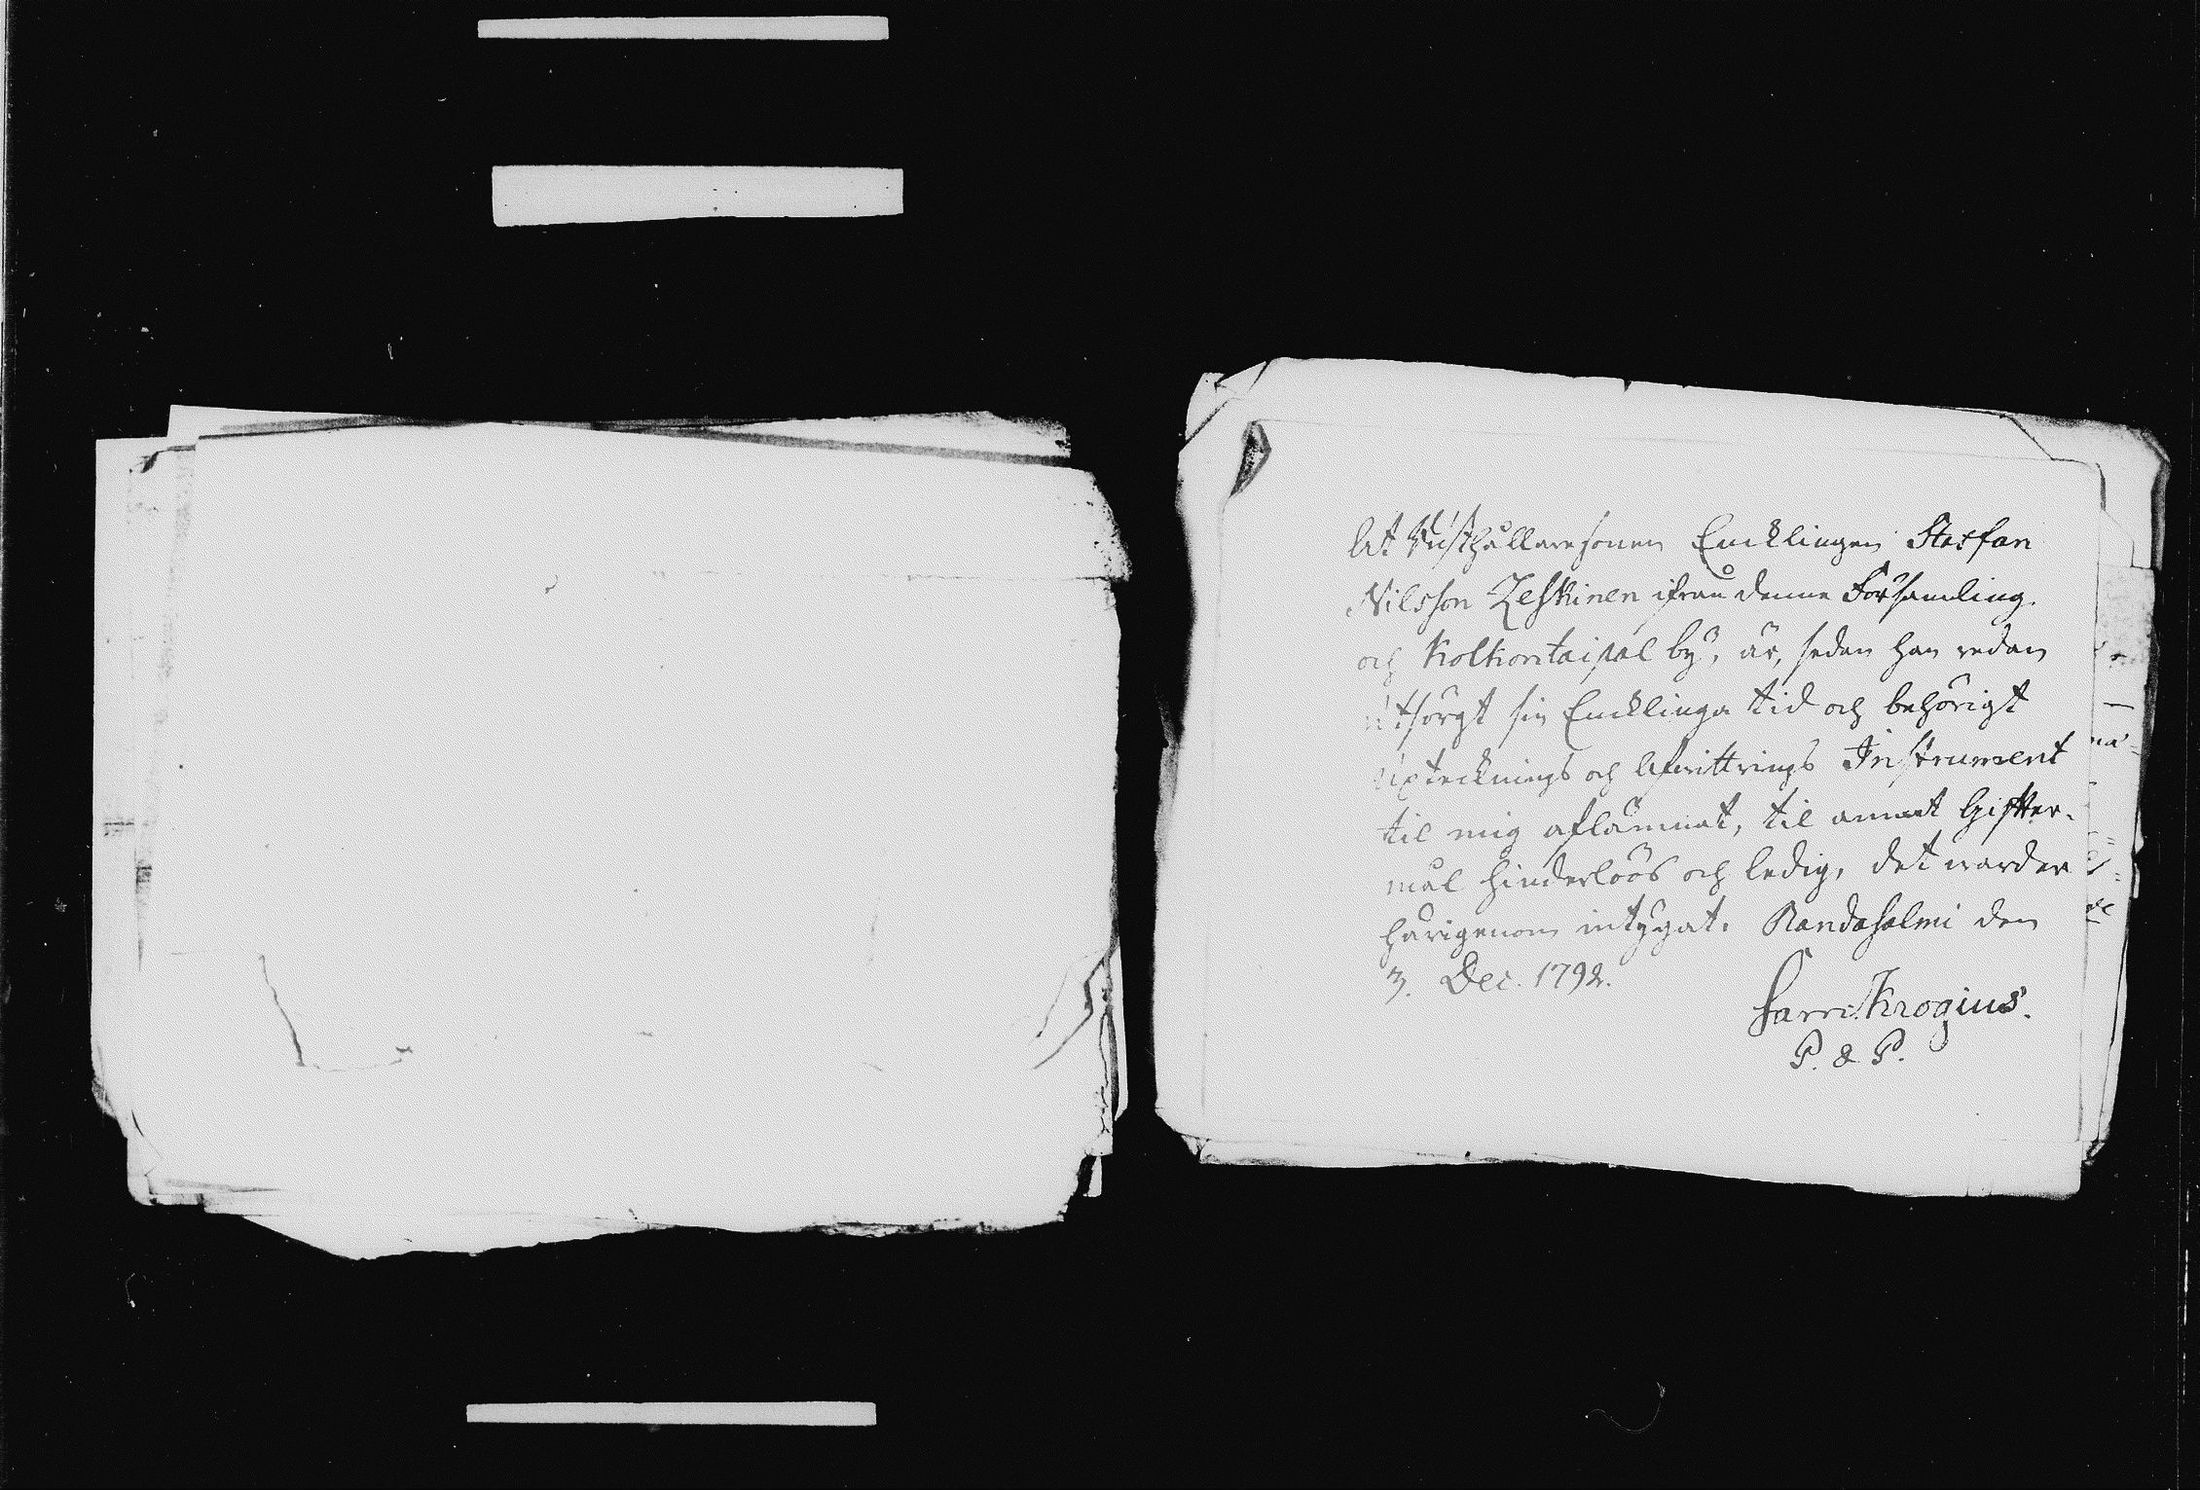 At Rusthållaresonen Encklingen Staffan
Nilsson Zeskinen ifrån denne Församling
och Kolkontaipal by, är, sedan han redan
utsörgt sin Encklinga tid och behörigt
Upteknings och Afwittrings Instrument
til mig aflämnat, til annat Gifter-
mål hinderlöös och ledig, det warder
härigenom intygat. Randasalmi den
3. Dec. 1792.
Krogius.
P. & P.